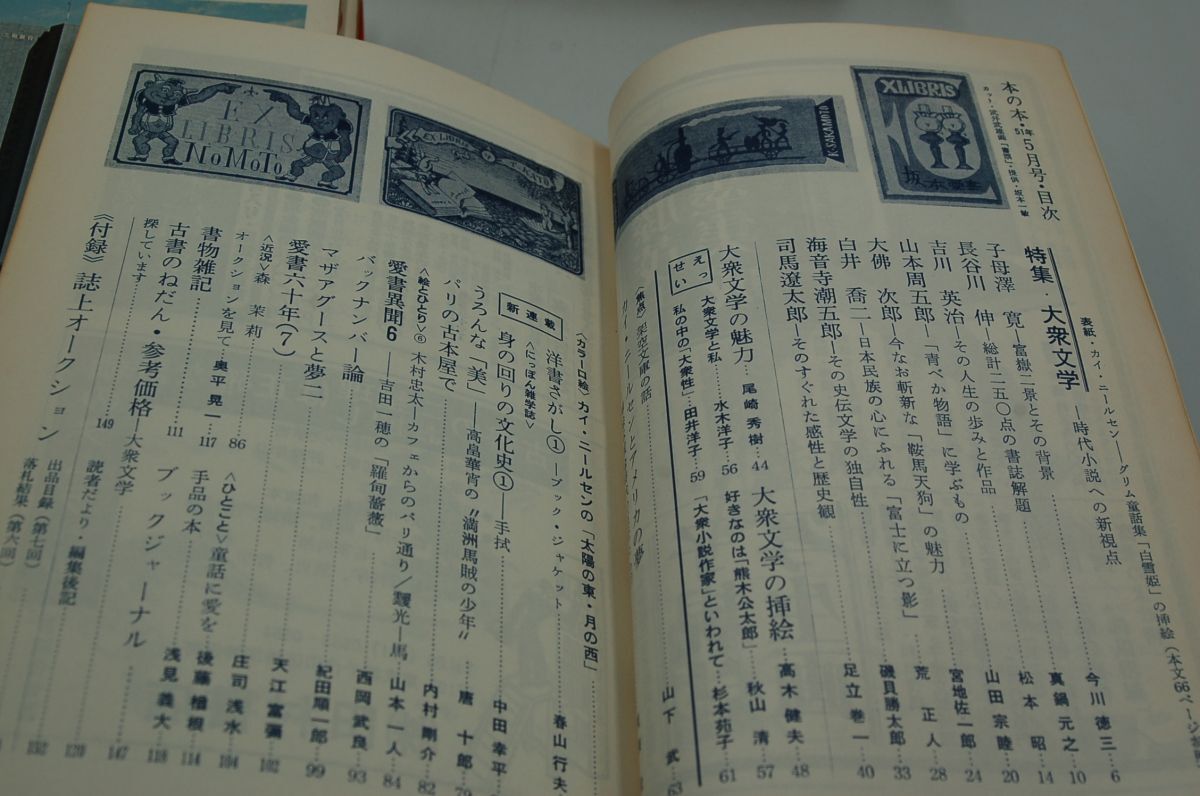 本の本・51年5月号・目次
XLIBRIS
A.SAKAMOTO
表紙・カイ・ニールセン―グリム童話集「白雪姫」の挿絵(本文66ページ
特集・大衆文学
―時代小説への新視点……今川徳三 6
子母澤 寛―富嶽二景とその背景……真鍋元之 10
長谷川 伸―総計二五〇点の書誌解題……松本 昭 14
吉川 英治―その人生の歩みと作品……山田宗睦 20
山本周五郎―「青べか物語」に学ぶもの……宮地佐一郎 24
大佛 次郎―今なお斬新な「鞍馬天狗」の魅力……荒 正人 28
白井 喬二―日本民族の心にふれる「富士に立つ影」……磯貝勝太郎 33
海音寺潮五郎―その史伝文学の独自性……足立巻一 40
司馬遼太郎―そのすぐれた感性と歴史観
大衆文学の魅力……尾崎秀樹 44
大衆文学の挿絵……高木健夫 48
えっせい
大衆文学と私……水木洋子 56
好きなのは「熊木公太郎」……秋山 清 57
私の中の「大衆性」……田井洋子 59
「大衆小説作家」といわれて……杉本苑子 61
架空文庫の話……山下 武 63
EX LIBRIS
EX LIBRIS NoMoTo
〈カラー口絵〉カイ・ニールセンの「太陽の東・月の西」
新連載
洋書さがし①―ブック・ジャケット……春山行夫
〈にっぽん雑学誌〉
身の回りの文化史①―手拭……中田幸平
うろんな「美」―高畠華宵の〝満洲馬賊の少年〟……唐 十郎 79
パリの古本屋で……内村剛介 82
〈絵とひとり〉⑥ 木村忠太―カフェからのパリ通り/靉光―馬……山本一人 84
愛書異聞6―吉田一穂の「羅甸薔薇」
バックナンバー論……西岡武良 93
マザアグースと夢二……紀田順一郎 99
愛書六十年(7)……天江富彌 102
〈近況〉森 茉莉……86
〈ひとこと〉童話に愛を……庄司浅水 104
オークションを見て……奥平晃一 117
手品の本……後藤楢根 114
書物雑記……111
ブックジャーナル……浅見義大 118
古書のねだん・参考価格―大衆文学……147
探しています……149
読者だより・編集後記
《付録》誌上オークション
出品目録(第七回)
落札結集(第六回)